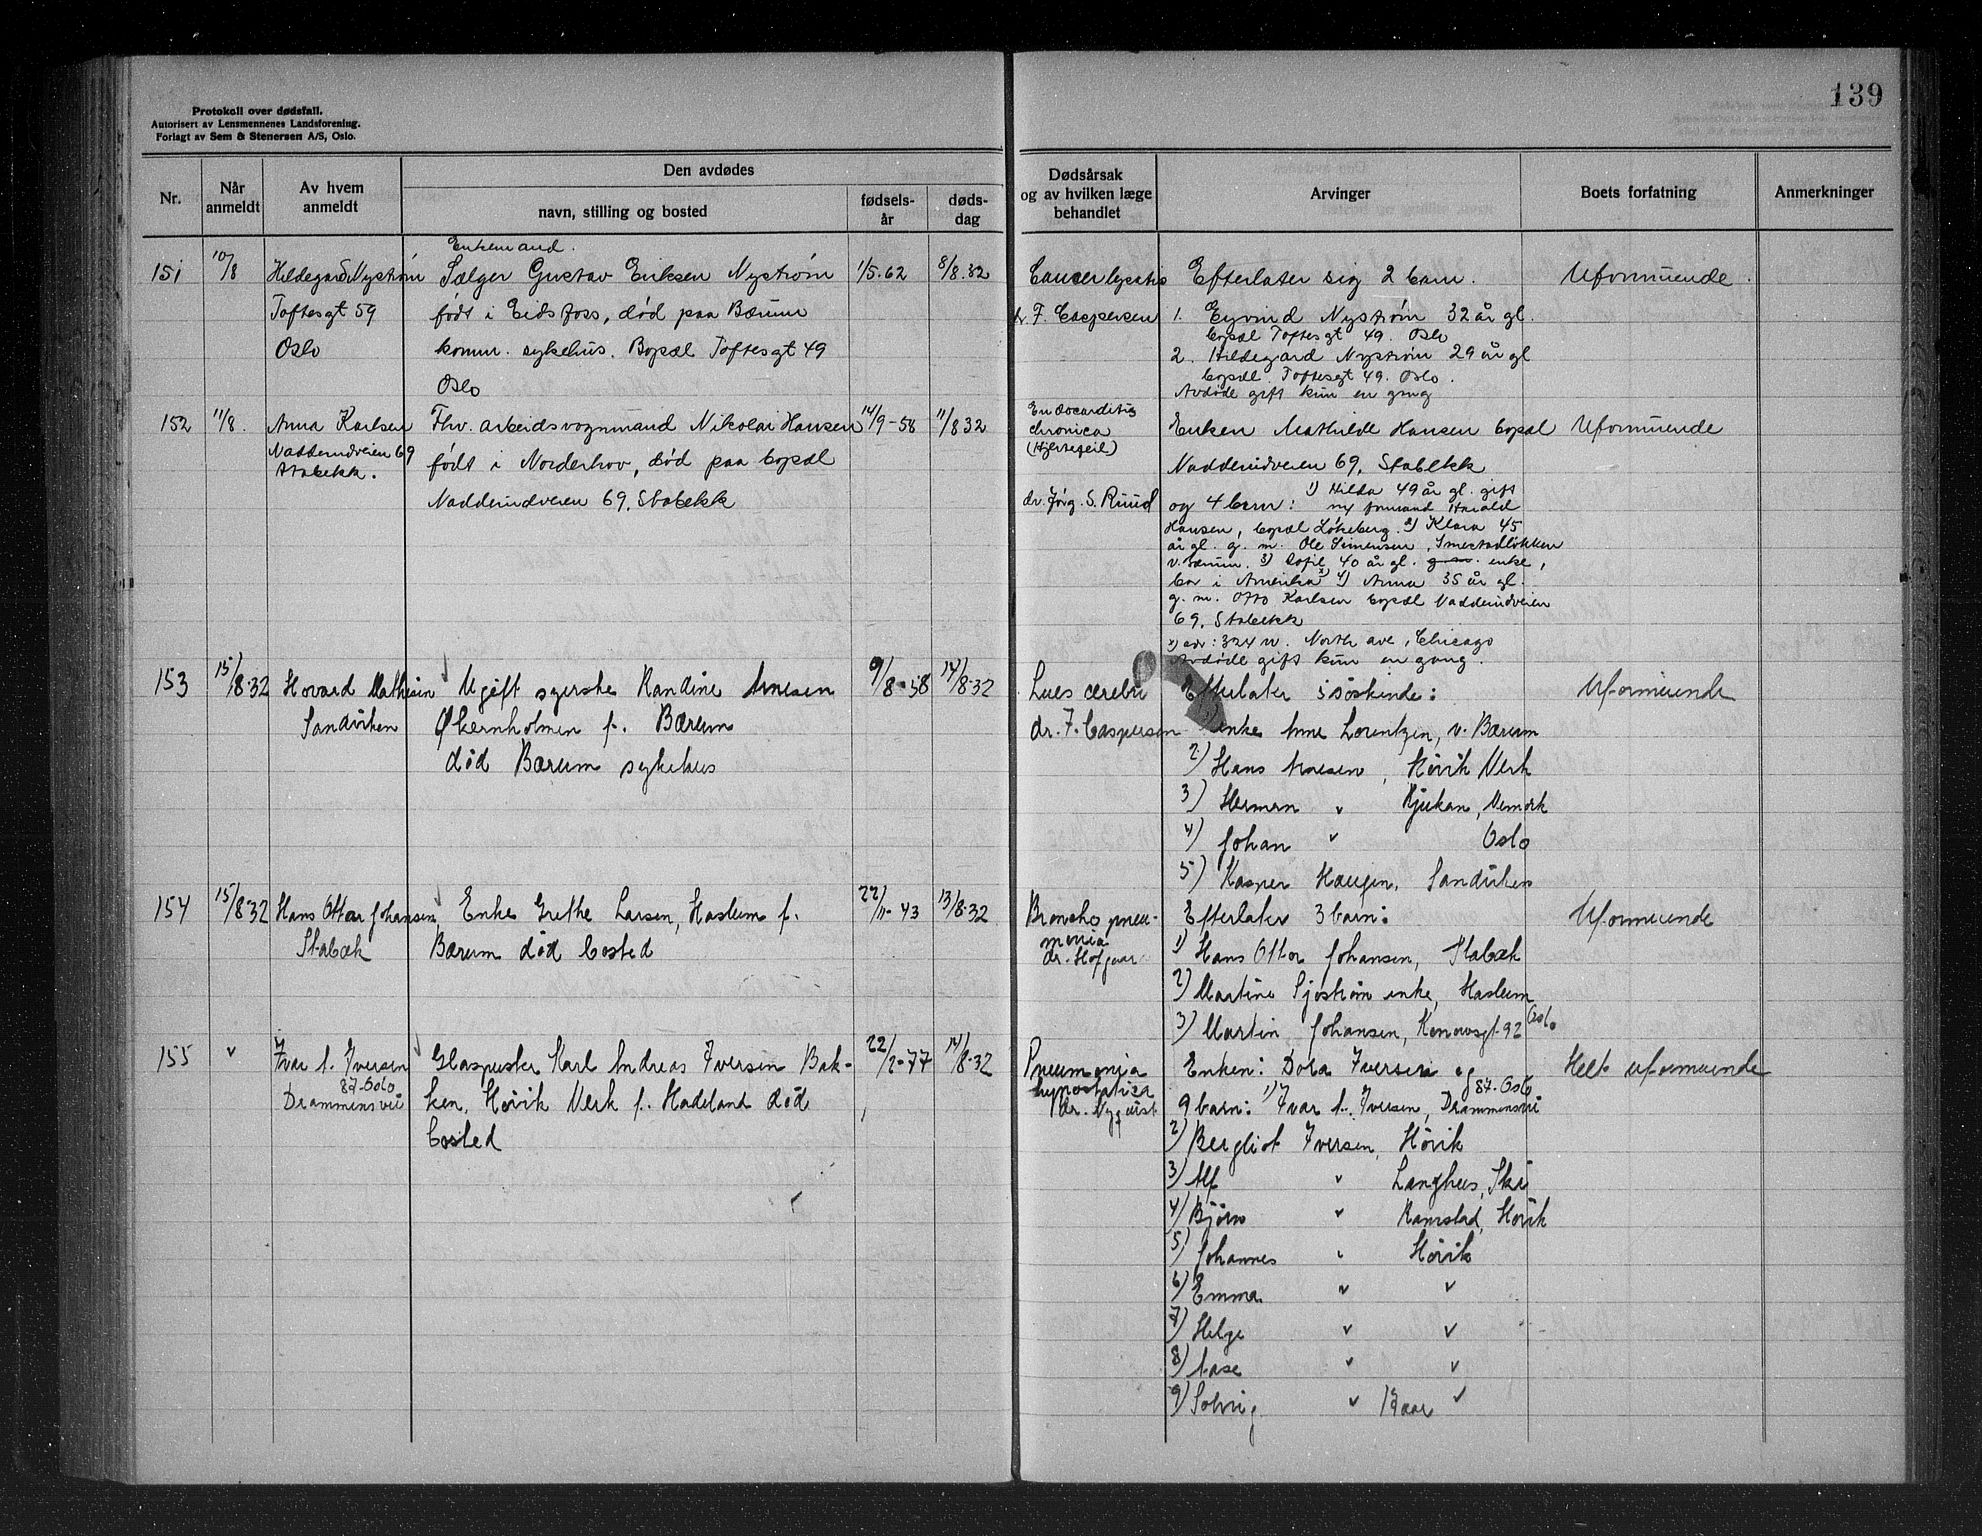 139
Protokoll over dødsfall.
Autorisert av Lensmennenes Landsforening.
Forlagt av Sem & Stenersen A/S, Oslo.
Nr.
Når anmeldt
Av hvem anmeldt
Den avdødes
navn, stilling og bosted
fødsels-år
døds-dag
Dødsårsak
og av hvilken læge
behandlet
Arvinger
Boets forfatning
Anmerkninger
151
10/8
Hildegard Nystrøm
Toftesgt 59
Oslo
Enkemand.
Sælger Gustav Eriksen Nystrøm
født i Eidsfoss, død paa Bærum
komm. sykehus. Bopæl Toftesgt 49
Oslo
1/5.62
8/8.32
Cancer
dr F. Caspersen
Efterlater sig 2 barn.
1. Eyvind Nystrøm 32 år gl.
bopæl Toftesgt 49. Oslo
2. Hildegard Nystrøm 29 år gl
bopæl. Toftesgt 49. Oslo.
Avdøde gift kun en gang
Uformuende.
152
11/8.
Anna Karlsen
Nadderudveien 69
Stabekk.
Fhv. arbeidsvognmand Nikolai Hansen
født i Norderhov, død paa bopæl
Nadderudveien 69, Stabekk
14/9-58
11/8 32
Endocarditis
chronica
(Hjertefeil)
dr. Jørg. S. Ruud
Enken Mathilde Hansen bopæl
Nadderudveien 69, Stabekk
og 4 barn: 1) Hilda 49 år gl. gift
m/ formand Harald
Hansen, bopæl Løkeberg. 2) Klara 45
år gl. g. m. Ole Simensen, Smestadløkken
v. Bærum. 3) Sofie 40 år gl. g. m. enke,
bor i Amerika x) 4) Anna 35 år gl.
g. m. Otto Karlsen bopæl Nadderudveien
69, Stabekk
x) adr: 324 W. North ave, Chicago
Avdøde gift kun en gang.
Uformuende
153
15/8.32
Hovard Mathisen
Sandviken
Ugift syerske Randine Arnesen
Økernholmen p. Bærum
død Bærum sykehus
9/8-58
14/8.32
Lues cerebri
dr. F. Caspersen
Efterlater 5 søskende:
1) enke Anne Lorentzen, v. Bærum
2) Hans Arnesen, Høvik Verk
3) Herman " Rjukan, Vemork
4) Johan " Oslo
5) Kasper Haugen, Sandviken
Uformuende
154
15/8 32
Hans Ottar Johansen
Stabæk
Enke Grethe Larsen, Haslum p.
Bærum død bosted
22/11-43
13/8.32
Broncho pneu-
monia
dr. Hofgaar
Efterlater 3 barn:
1) Hans Ottar Johansen, Stabæk
2) Martine Sjøstrøm enke, Haslum
3) Martin Johansen, Konowsgt. 92 Oslo
Uformuende
155
"
Ivar A. Iversen
87-Oslo
Drammensvei
Glaspuster Karl Andreas Iversen Bak-
ken, Høvik Verk f. Hadeland død
bosted
22/2-77
14/8.32
Pneumonia
hypostatica
dr. Nyquist
Enken: Dora Iversen og
9 barn: 1) Ivar A. Iversen, Drammensvei 87. Oslo
2) Bergliot Iversen, Høvik
3) Alf " Langhus, Ski
4) Bjørn " Ramstad, Høvik
5) Johannes " Høvik
6) Emma " "
7) Helge " "
8) Aase " "
9) Solveig " 13 aar "
Helt uformuende